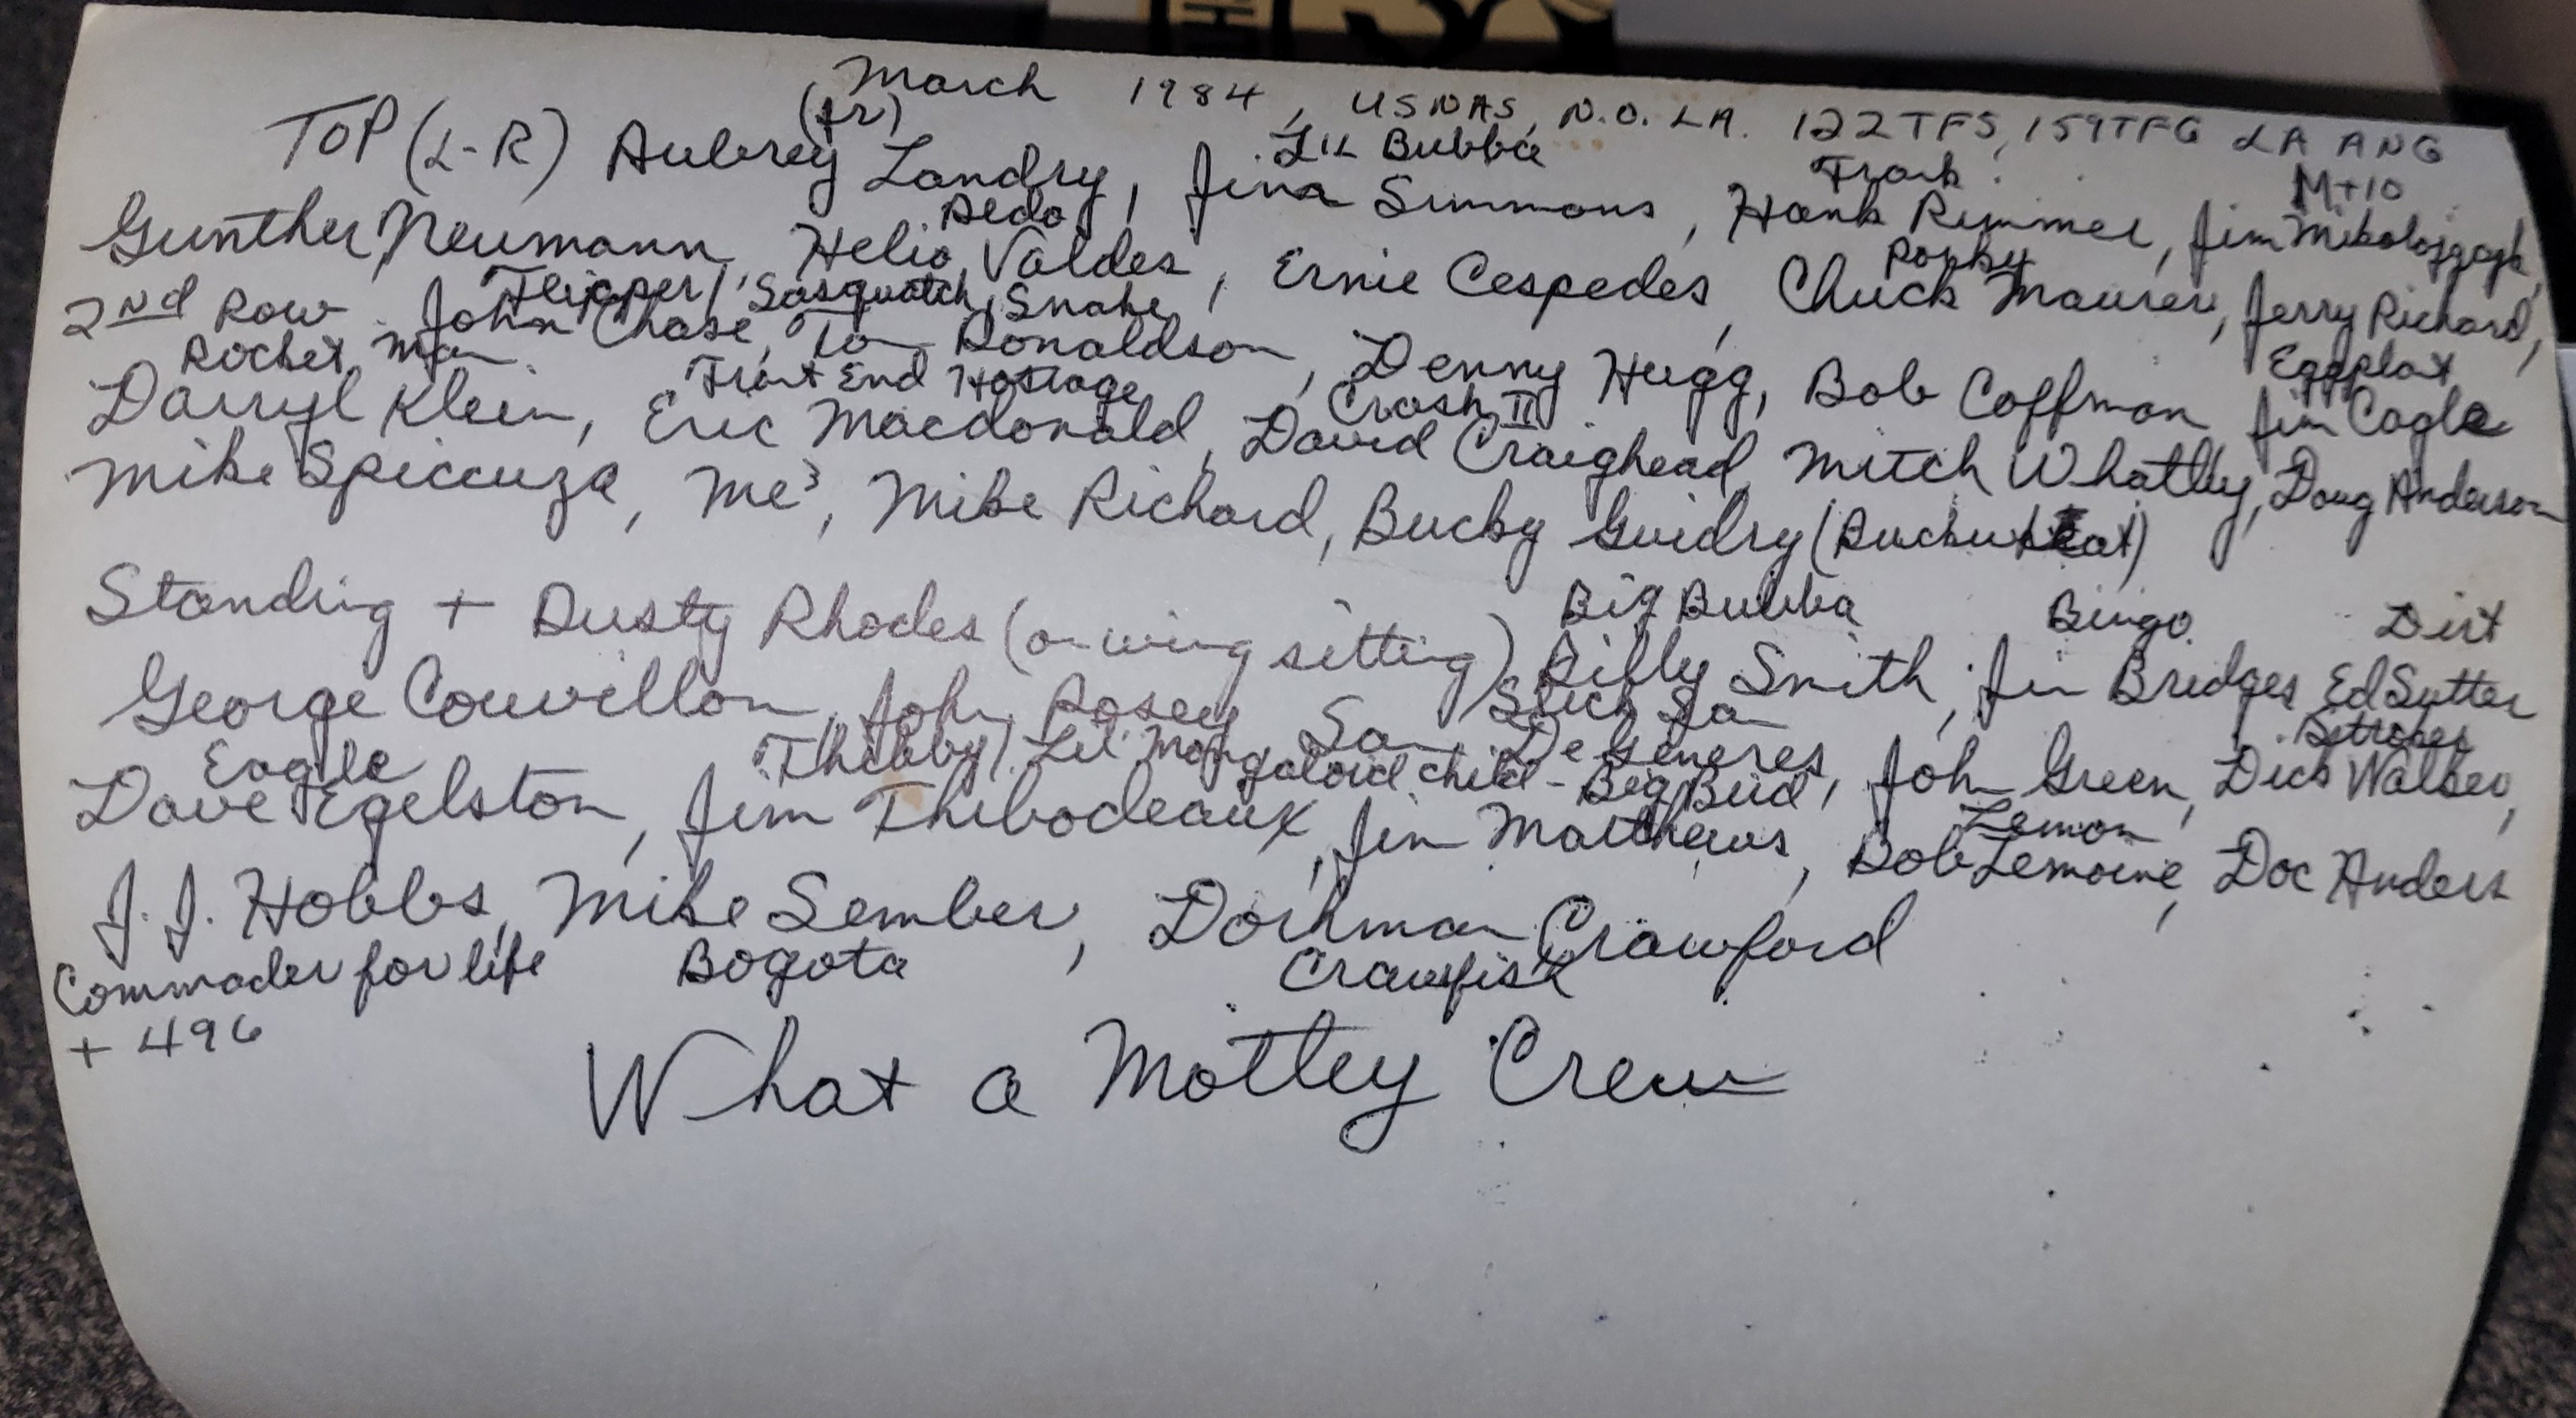 March 1984, USNAS, N.O. LA. 122TFS, 159TFG LA ANG
(Jr) Lil Bubba M+10
TOP (L-R) Aubrey Landry, Jim Simmons, Hank Rimmer, Jim
Dedo Porky
Gunther Neumann, Helio Valdes, Ernie Cespedes, Chuck Maurer, Jerry Richard,
Flipper Sasquatch, Snake
2nd Row John Chase, Tom Donaldson, Denny Hugg, Bob Coffman Jim Cagle
Rocket Man Front End Hostage Crash II
Darryl Klein, Eric Macdonald, David Craighead, Mitch Whatley, Doug Anderson
Mike Spiccuza, Me³, Mike Richard, Bucky Guidry
Big Bubba Bingo Dirt
Standing + Dusty Rhodes (on wing sitting) Billy Smith, Jim Bridges Ed Sutter
George Couvillon, John Posey Sam DeGeneres, John Green, Dick Walker,
Eagle Thibby / Lil Mongoloid child - Big Bird Lemon
Dave Egelston, Jim Thibodeaux, Jim Matthews, Bob Lemoine, Doc Anders
J.J. Hobbs, Mike Sember, Dorhman Crawford
Commader for life Bogota Crawfish
+ 496
What a Motley Crew